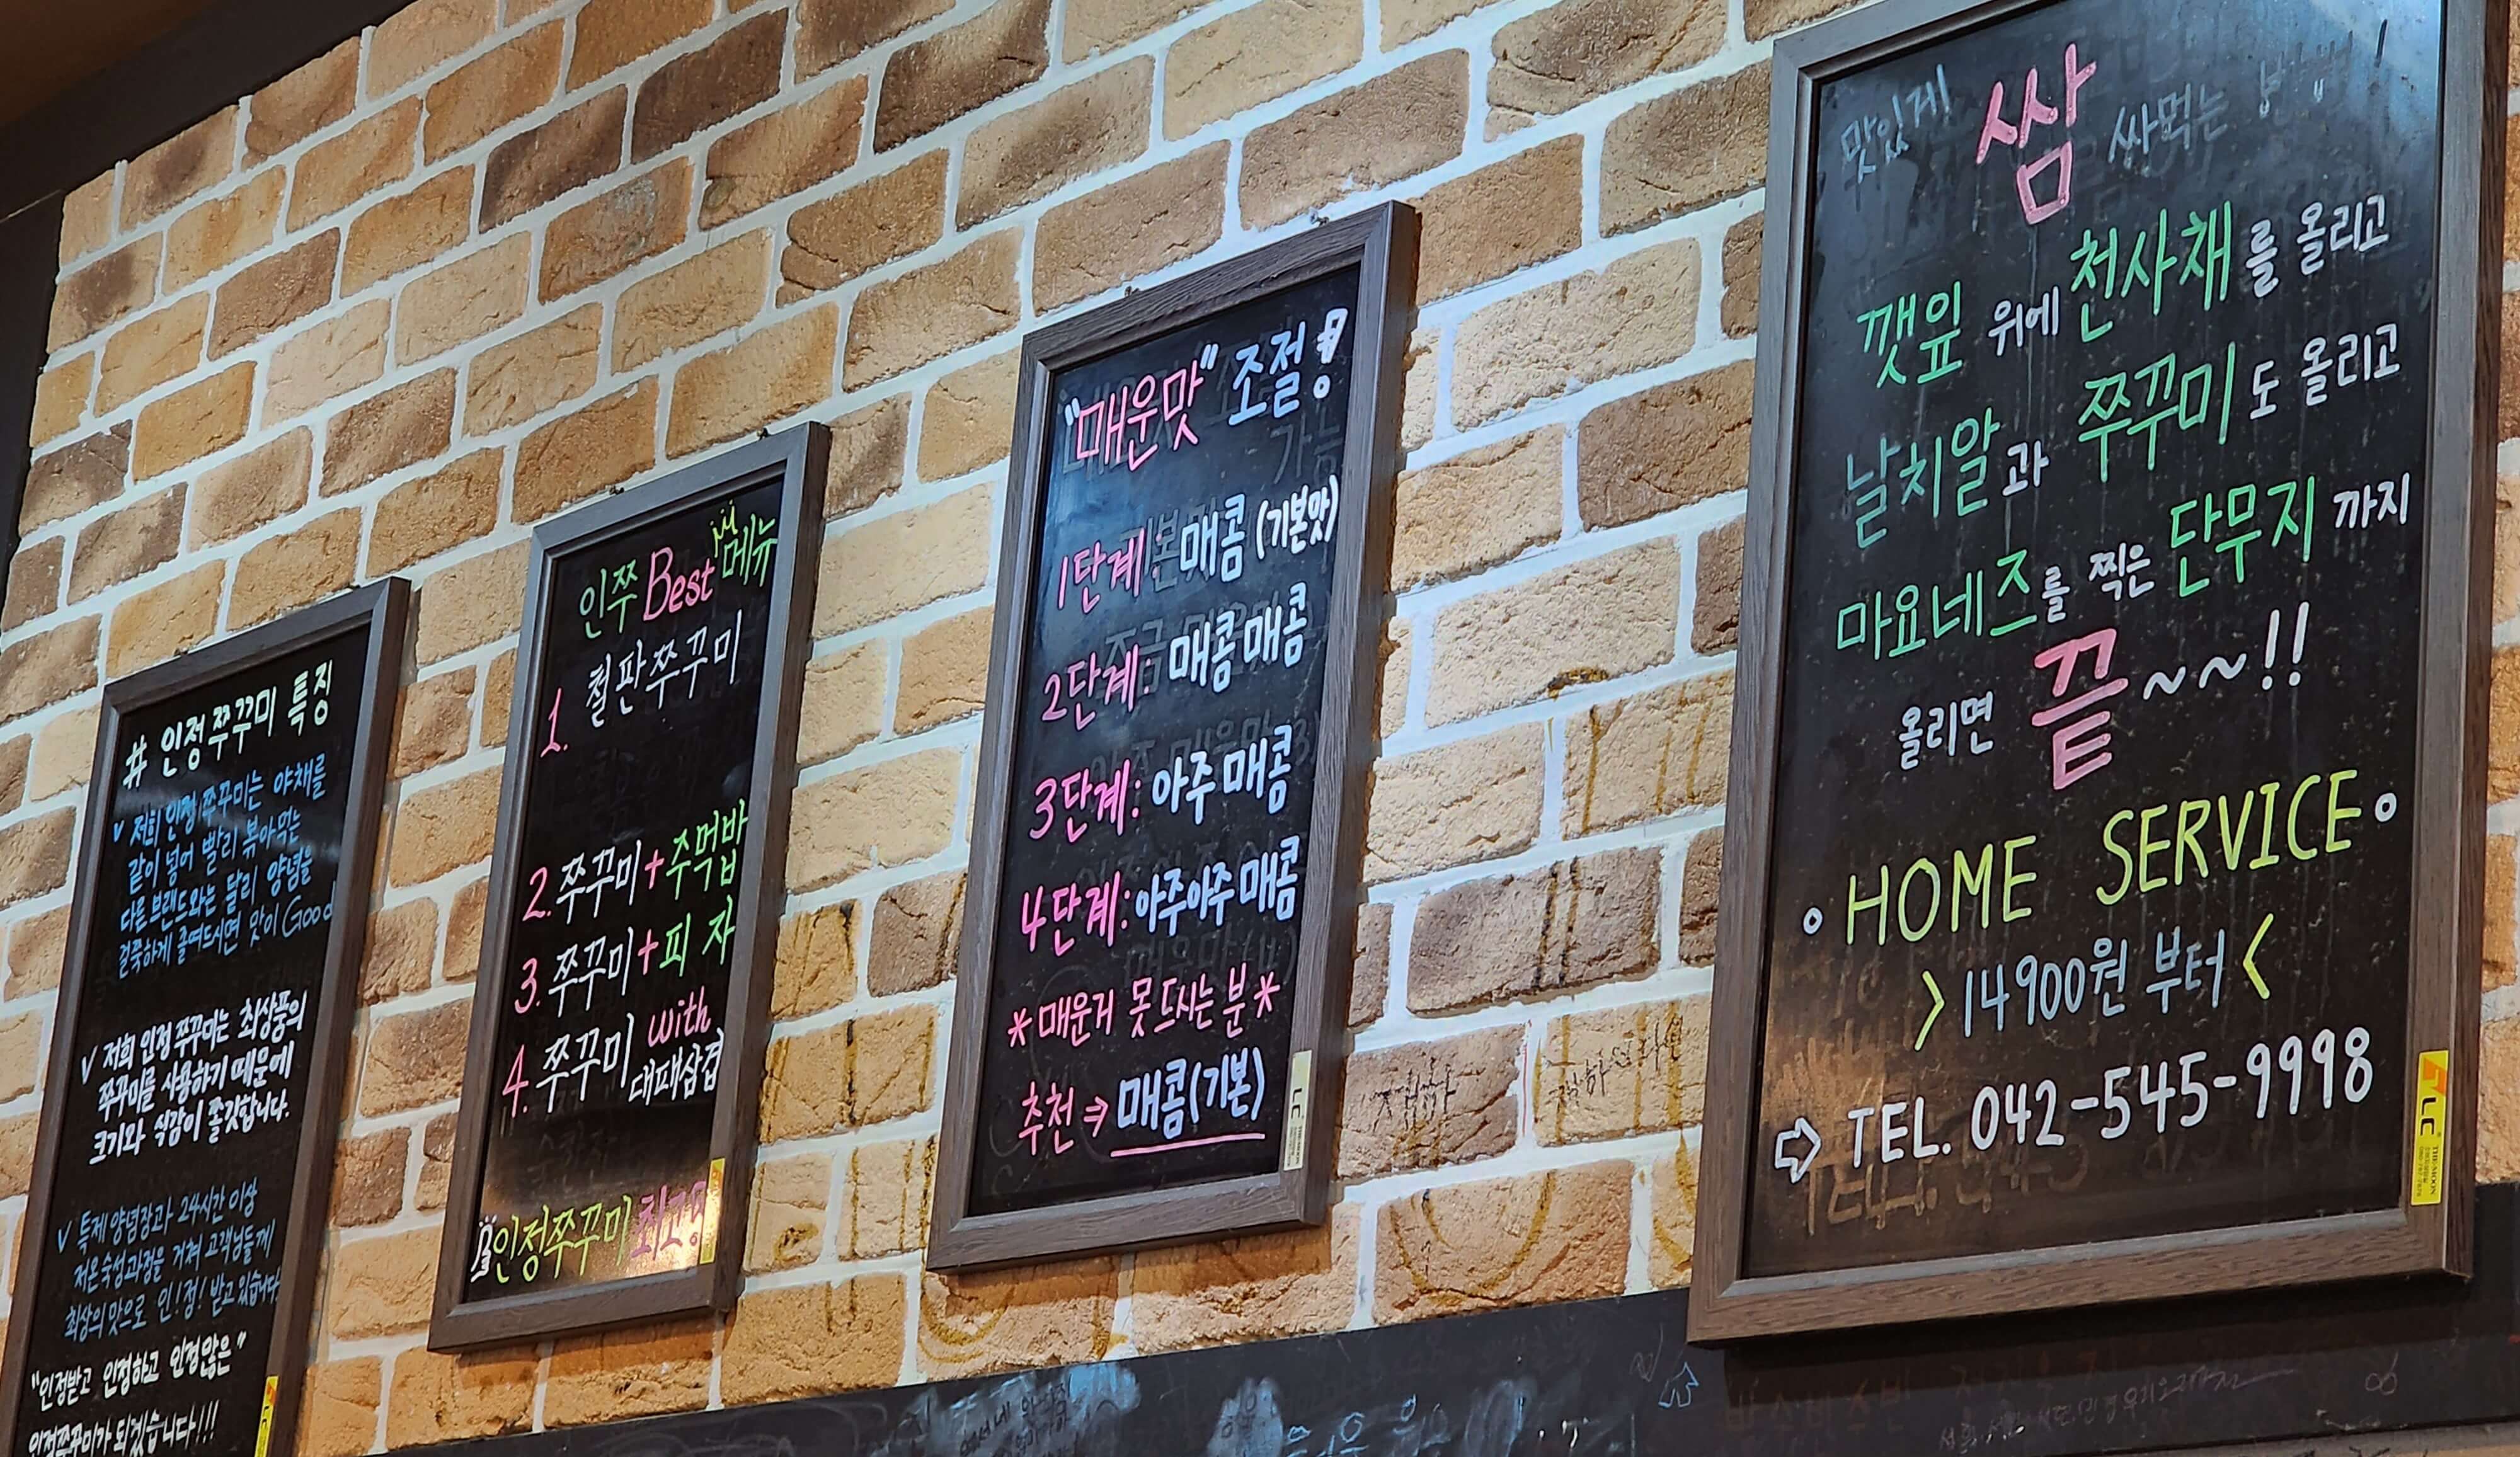 # 인정쭈꾸미 특징
v 저희 인정쭈꾸미는 야채를
같이 넣어 빨리 볶아먹는
다른 브랜드와는 달리 양념을
걸쭉하게 졸여드시면 맛이 Good
v 저희 인정쭈꾸미는 최상품의
쭈꾸미를 사용하기 때문에
크기와 식감이 쫄깃합니다.
v 특제양념장과 24시간 이상
저온숙성과정을 거쳐 고객님들께
최상의 맛으로 인!정! 받고있습니다
"인정받고 인정하고 인정않은"
인정쭈꾸미가 되겠습니다!!!
인쭈 Best 메뉴
1. 철판쭈꾸미
2. 쭈꾸미+주먹밥
3. 쭈꾸미+피자
4. 쭈꾸미 with
대패삼겹
인정쭈꾸미 최고!
"매운맛" 조절!
1단계: 매콤 (기본맛)
2단계: 매콤매콤
3단계: 아주매콤
4단계: 아주아주매콤
*매운거 못드시는분*
추천⇒ 매콤(기본)
맛있게! 쌈 싸먹는 방법!
깻잎 위에 천사채를 올리고
날치알과 쭈꾸미도 올리고
마요네즈를 찍은 단무지까지
올리면 끝~~!!
HOME SERVICE
>14900원 부터<
⇨ TEL. 042-545-9998
LC
LC